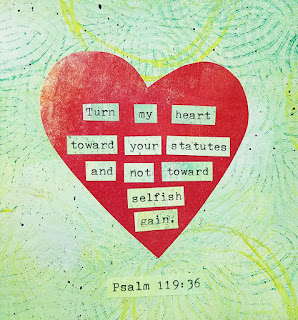 Turn my heart
toward your statutes
and not toward
selfish
gain.
Psalm 119:36